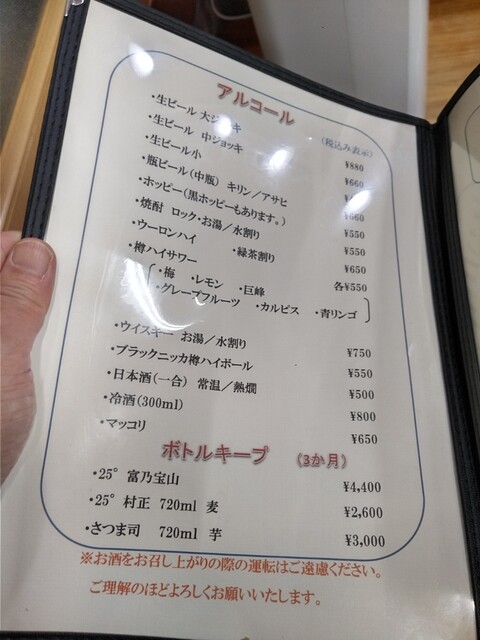 アルコール
(税込み表示)
・生ビール 大ジョッキ ¥880
・生ビール 中ジョッキ ¥660
・生ビール小
・瓶ビール(中瓶) キリン／アサヒ ¥660
・ホッピー(黒ホッピーもあります。) ¥550
・焼酎 ロック・お湯／水割り ¥550
・ウーロンハイ ・緑茶割り ¥650
・樽ハイサワー 各¥550
・梅 ・レモン ・巨峰
・グレープフルーツ ・カルピス ・青リンゴ
・ウイスキー お湯／水割り ¥750
・ブラックニッカ樽ハイボール ¥550
・日本酒(一合) 常温／熱燗 ¥500
・冷酒(300ml) ¥800
・マッコリ ¥650
ボトルキープ (3か月)
・25° 富乃宝山 ¥4,400
・25° 村正 720ml 麦 ¥2,600
・さつま司 720ml 芋 ¥3,000
※お酒をお召し上がりの際の運転はご遠慮ください。
ご理解のほどよろしくお願いいたします。